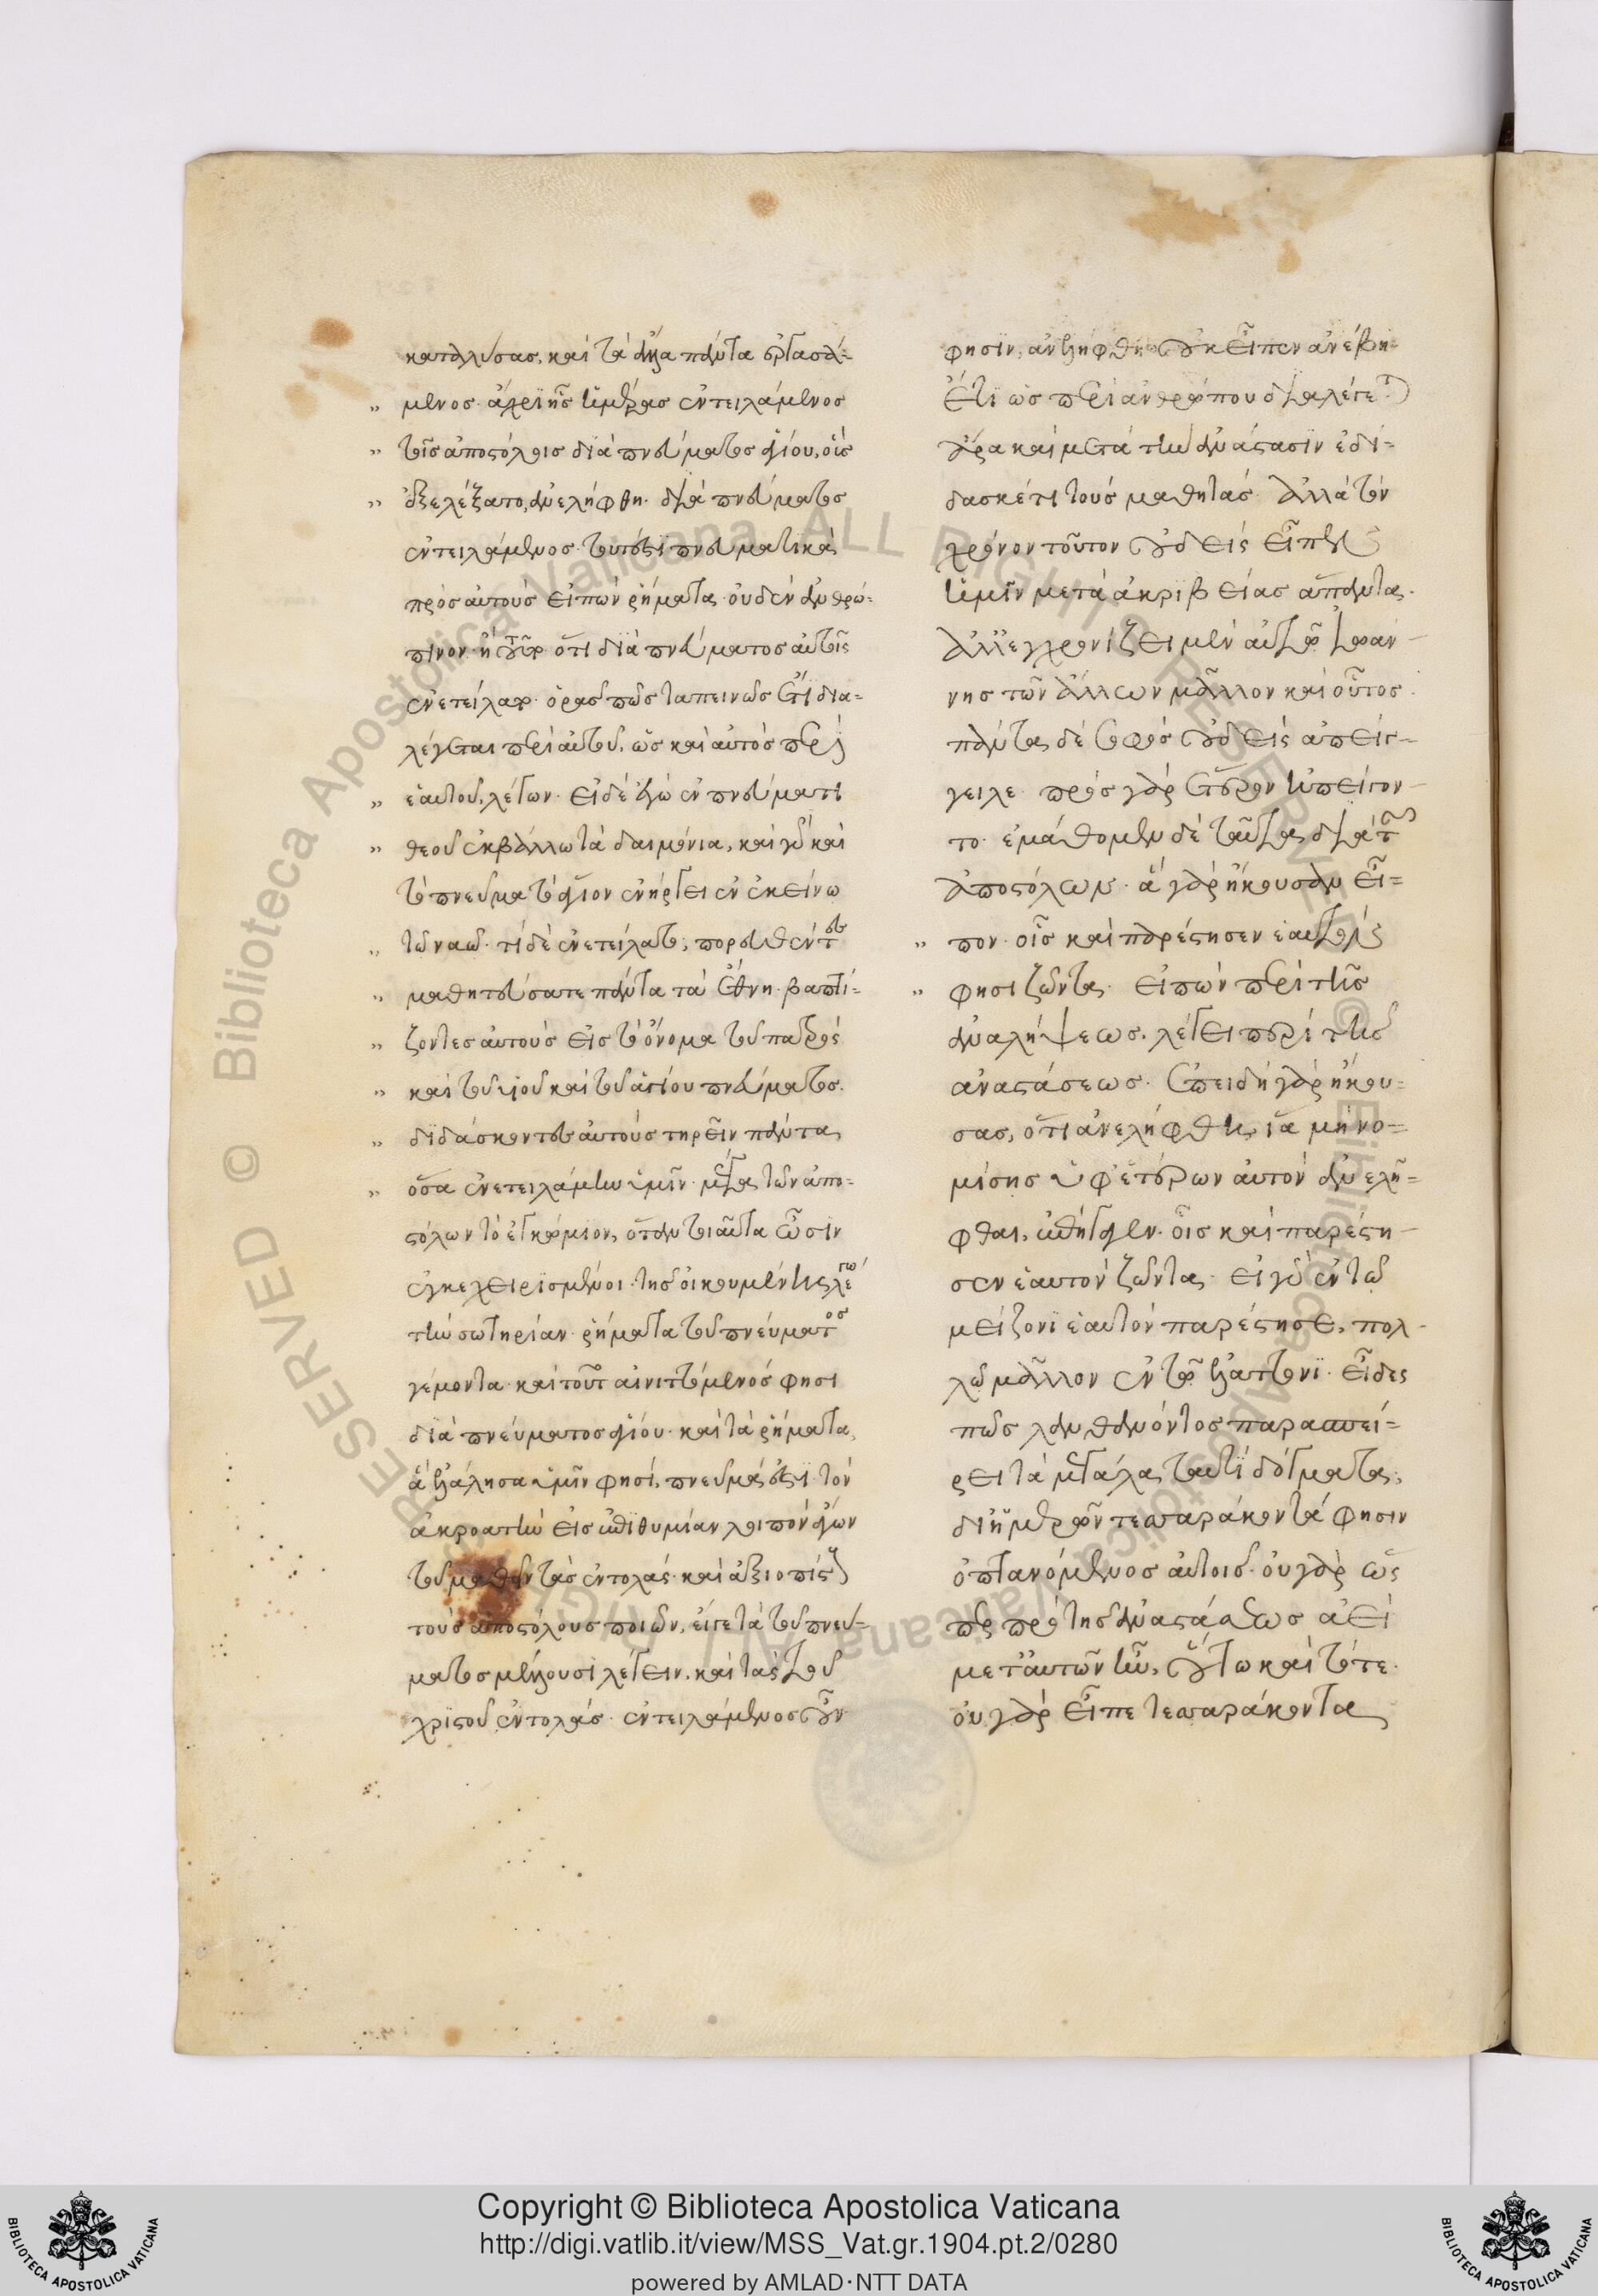 καταλύσας, καὶ τὰ ἄλλα πάντα ἐργασά-
μενος. ἄχρι ἧς ἡμέρας ἐντειλάμενος
τοῖς ἀποστόλοις διὰ πνεύματος ἁγίου, οὓς
ἐξελέξατο, ἀνελήφθη. διὰ πνεύματος
ἐντειλάμενος. τουτέστι πνευματικὰ
πρὸς αὐτοὺς εἰπὼν ῥήματα. οὐδὲν ἀνθρώ-
πινον. ἢ τοῦτο. ὅτι διὰ πνεύματος αὐτοῖς
ἐνετείλατο. ὁρᾶς πῶς ταπεινῶς ἔτι δια-
λέγεται περὶ αὐτοῦ, ὡς καὶ αὐτὸς περὶ
ἑαυτοῦ, λέγων. εἰ δὲ ἐγὼ ἐν πνεύματι
θεοῦ ἐκβάλλω τὰ δαιμόνια. καὶ γὰρ καὶ
τὸ πνεῦμα τὸ ἅγιον ἐνήργει ἐν ἐκείνω
τῶ ναῶ. τί δὲ ἐνετείλατο; πορευθέντες
μαθητεύσατε πάντα τὰ ἔθνη. βαπτί-
ζοντες αὐτοὺς εἰς τὸ ὄνομα τοῦ πατρὸς
καὶ τοῦ υἱοῦ καὶ τοῦ ἁγίου πνεύματος.
διδάσκοντες αὐτοὺς τηρεῖν πάντα
ὅσα ἐνετειλάμην ὑμῖν. μέγα τῶν ἀπο-
στόλων τὸ ἐγκώμιον, ὅταν τοιαῦτα ὦσιν
ἐγκεχειρισμένοι. τῆς οἰκουμένης λέγω
τὴν σωτηρίαν. ῥήματα τοῦ πνεύματος
γέμοντα. καὶ τοῦτο αἰνιττόμενός φησι
διὰ πνεύματος ἁγίου. καὶ τὰ ῥήματα
ἃ ἐλάλησα ὑμῖν φησὶ, πνεῦμά ἐστι. τὸν
ἀκροατὴν εἰς ἐπιθυμίαν λοιπὸν ἄγων
τοῦ μαθεῖν τὰς ἐντολάς. καὶ ἀξιοπίστους
τοὺς ἀποστόλους ποιῶν, εἴγε τὰ τοῦ πνεύ-
ματος μέλλουσι λέγειν, καὶ τὰς τοῦ
χριστοῦ ἐντολάς. ἐντειλάμενος οὖν
φησὶν, ἀνελήφθη. οὐκ εἶπεν ἀνέβη.
ἔτι ὡς περὶ ἀνθρώπου διαλέγεται.
ἄρα καὶ μετὰ τὴν ἀνάστασιν ἐδί-
δασκέ τι τοὺς μαθητάς. ἀλλὰ τὸν
χρόνον τοῦτον οὐδεὶς εἶπεν
ἡμῖν μετὰ ἀκριβείας ἅπαντα.
ἀλλ' ἐγχρονίζει μὲν αὐτῶ ἰωάν-
νης τῶν ἄλλων μᾶλλον καὶ οὗτος.
πάντα δὲ σαφῶς οὐδεὶς ἀπήγ-
γειλε. πρὸς γὰρ ἕτερον ἠπείγον-
το. ἐμάθομεν δὲ ταῦτα διὰ τῶν
ἀποστόλων. ἃ γὰρ ἤκουσαν εἶ-
πον. οἷς καὶ παρέστησεν ἑαυτὸν
φησὶ ζῶντα. εἰπὼν περὶ τῆς
ἀναλήψεως. λέγει περὶ τῆς
ἀναστάσεως. ἐπειδὴ γὰρ ἤκου-
σας, ὅτι ἀνελήφθη, ἵνα μὴ νο-
μίσης ὑφ' ἑτέρων αὐτὸν ἀνελῆ-
φθαι, ἐπήγαγεν. οἷς καὶ παρέστη-
σεν ἑαυτὸν ζῶντα. εἰ γὰρ ἐν τῶ
μείζονι ἑαυτὸν παρέστησε, πολ-
λῶ μᾶλλον ἐν τῶ ἐλάττονι. εἶδες
πῶς λανθανόντως παρασπεί-
ρει τὰ μεγάλα ταυτὶ δόγματα;
δι' ἡμερῶν τεσσαράκοντά φησιν
ὀπτανόμενος αὐτοῖς. οὐ γὰρ ὥς
περ πρὸ τῆς ἀναστάσεως ἀεὶ
μετ' αὐτῶν ἦν, οὕτω καὶ τότε.
οὐ γὰρ εἶπε τεσσαράκοντα
Copyright © Biblioteca Apostolica Vaticana
http://digi.vatlib.it/view/MSS_Vat.gr.1904.pt.2/0280
powered by AMLAD·NTT DATA